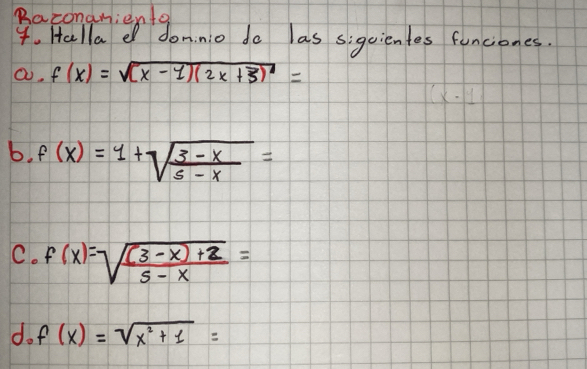 Razonamiento
7. Halla el dominio de las siguientes funciones.
a. f(x) = √(x-1)(2x+3) =
(x-1
b. f(x) = 1 + √3-x/5-x =
c. f(x) = √(3-x)+2/5-x =
d. f(x) = √x²+1 =